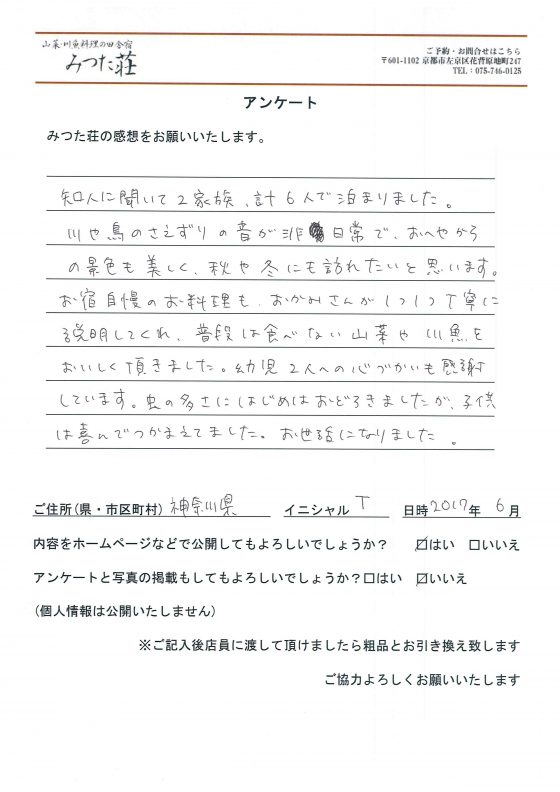 山菜・川魚料理の田舎宿
みつた荘
ご予約・お問合せはこちら
〒601-1102 京都市左京区花背原地町247
TEL：075-746-0125
アンケート
みつた荘の感想をお願いいたします。
知人に聞いて2家族、計6人で泊まりました。
川や鳥のさえずりの音が非日常で、おへやから
の景色も美しく、秋や冬にも訪れたいと思います。
お宿自慢のお料理も、おかみさんが1つ1つ丁寧に
説明してくれ、普段は食べない山菜や川魚を
おいしく頂きました。幼児2人への心づかいも感謝
しています。虫の多さにはじめはおどろきましたが、子供
は喜んでつかまえてました。お世話になりました。
ご住所(県・市区町村) 神奈川県 イニシャル T 日時2017年 6月
内容をホームページなどで公開してもよろしいでしょうか？ ☑はい □いいえ
アンケートと写真の掲載もしてもよろしいでしょうか？□はい ☑いいえ
(個人情報は公開いたしません)
※ご記入後店員に渡して頂けましたら粗品とお引き換え致します
ご協力よろしくお願いいたします